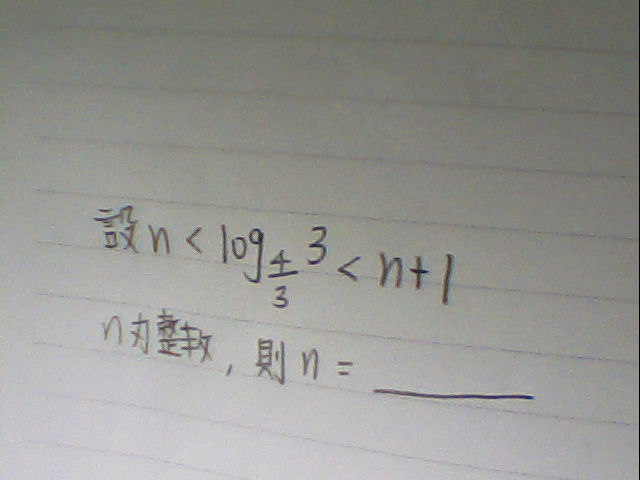 設 n < log_{4/3} 3 < n+1
n為整数, 則 n = ______